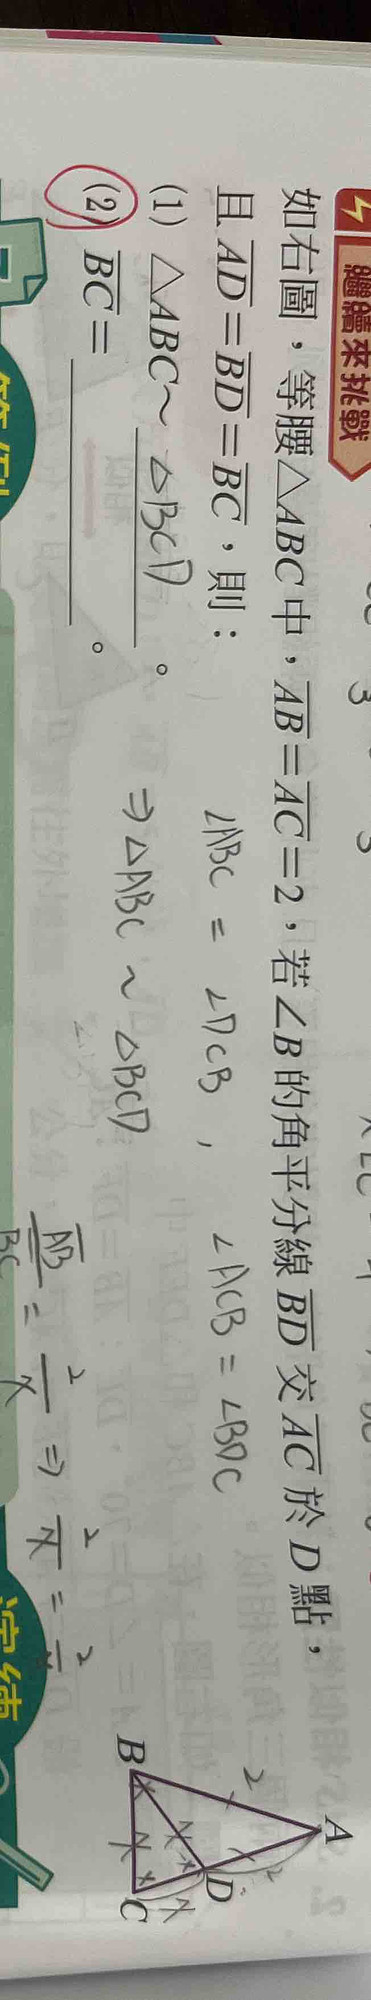 繼續來挑戰
如右圖，等腰△ABC中，AB=AC=2，若∠B的角平分線BD交AC於D點，
且AD=BD=BC，則：
(1) △ABC~ △BCD 。
(2) BC= 。
∠ABC = ∠DCB , ∠ACB = ∠BDC
⇒ △ABC ~ △BCD
AB/BC = 2/x ⇒ 2/x = 2
A
2
2
D
B
C
演練